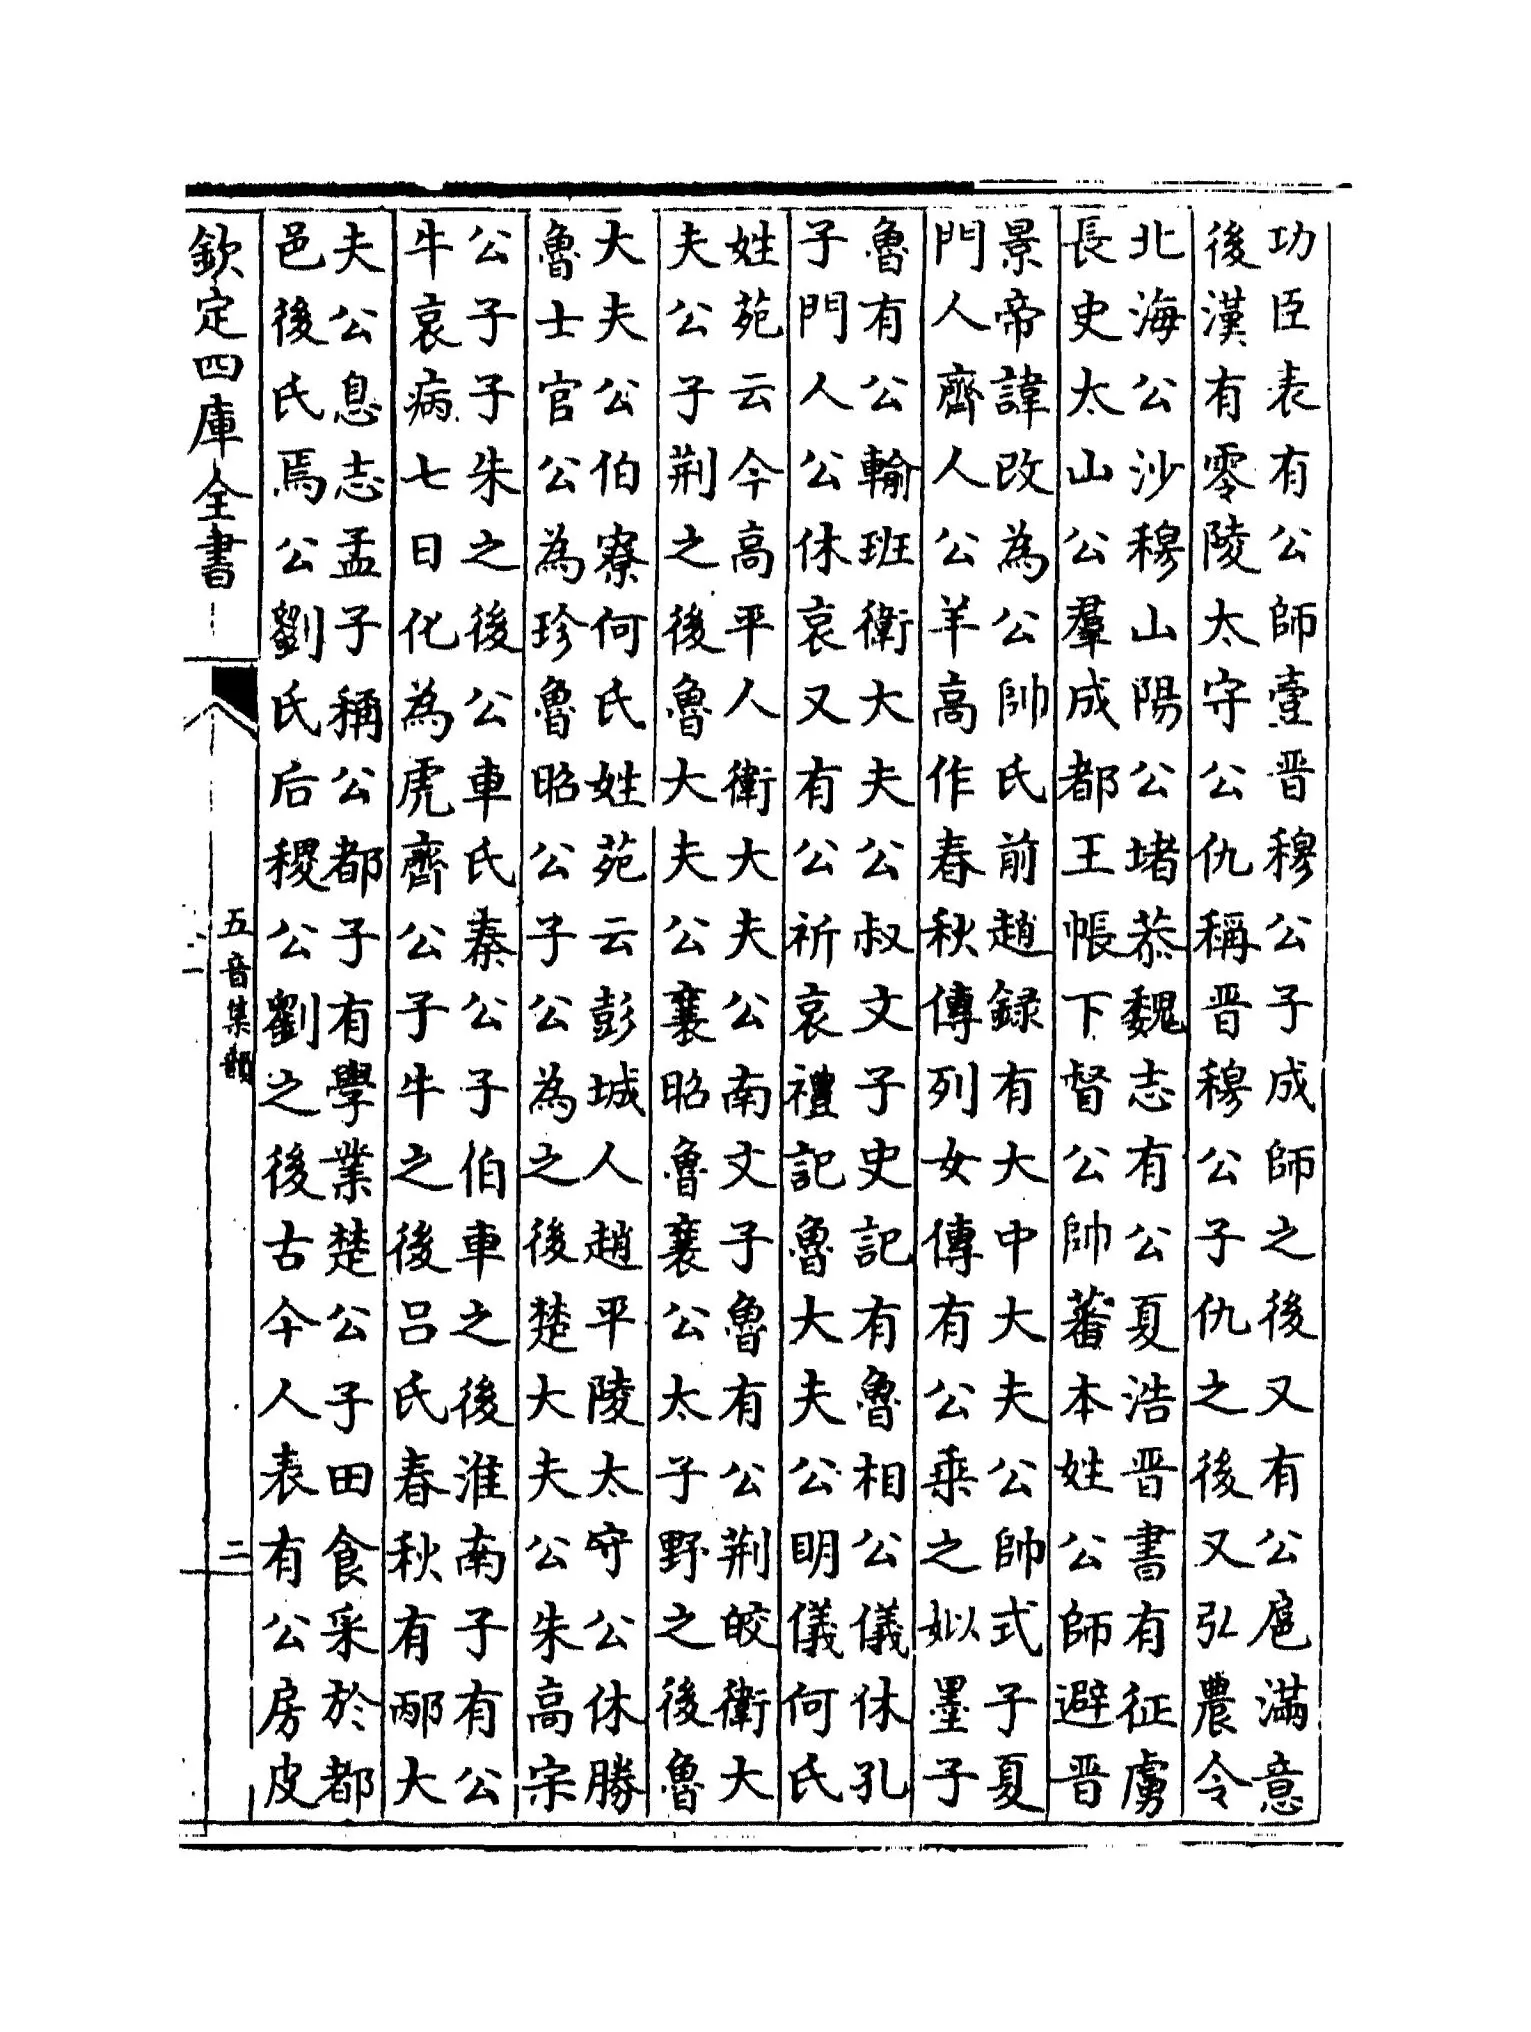 功臣表有公師壹晋穆公子成師之後又有公扈滿意
後漢有零陵太守公仇稱晋穆公子仇之後又弘農令
北海公沙穆山陽公堵恭魏志有公夏浩晋書有征虜
長史太山公羣成都王帳下督公帥蕃本姓公師避晋
景帝諱改為公帥氏前趙録有大中大夫公帥式子夏
門人齊人公羊高作春秋傳列女傳有公乗之姒墨子
魯有公輸班衛大夫公叔文子史記有魯相公儀休孔
子門人公休哀又有公祈哀禮記魯大夫公明儀何氏
姓苑云今高平人衛大夫公南文子魯有公荆皎衛大
夫公子荆之後魯大夫公襄昭魯襄公太子野之後魯
大夫公伯寮何氏姓苑云彭城人趙平陵太守公休勝
魯士官公為珍魯昭公子公為之後楚大夫公朱高宋
公子子朱之後公車氏秦公子伯車之後淮南子有公
牛哀病七日化為虎齊公子牛之後呂氏春秋有邴大
夫公息志孟子稱公都子有學業楚公子田食采於都
邑後氏焉公劉氏后稷公劉之後古今人表有公房皮
欽定四庫全書
五音集韻
二